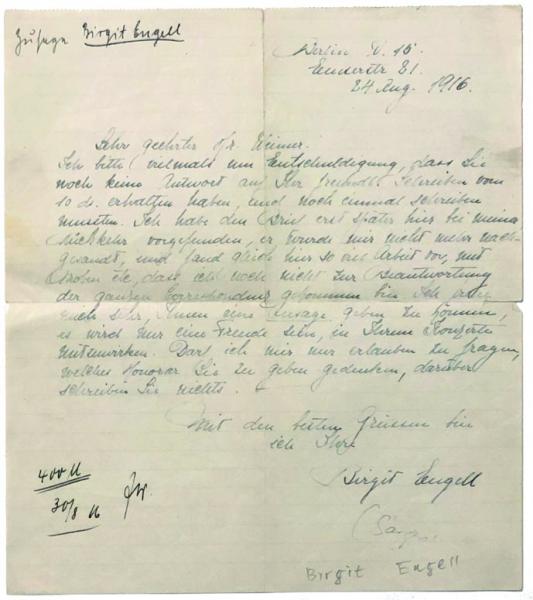 Zusage Birgit Engell
Berlin W. 15.
24 Aug. 1916.
Sehr geehrter Hr. Weimer.
Ich bitte vielmals um Entschuldigung, dass Sie
noch keine Antwort auf Ihr freundl. Schreiben vom
10 ds. erhalten haben, und noch einmal schreiben
mussten. Ich habe den Brief erst später hier bei meiner
Rückkehr vorgefunden, er wurde mir nicht mehr nach-
gesandt, und fand gleich hier so viel Arbeit vor, mit
Proben etc, dass ich noch nicht zur Beantwortung
der ganzen Correspondenz gekommen bin. Ich
sehr, Ihnen eine Zusage geben zu können,
es wird mir eine Freude sein, in Ihrem Konzerte
mitzuwirken. Darf ich mir nur erlauben zu fragen,
welches Honorar Sie zu geben gedenken, darüber
schreiben Sie nichts.
Mit den besten Grüssen bin
ich Ihre
Birgit Engell
400 M
30/8 16
Birgit Engell